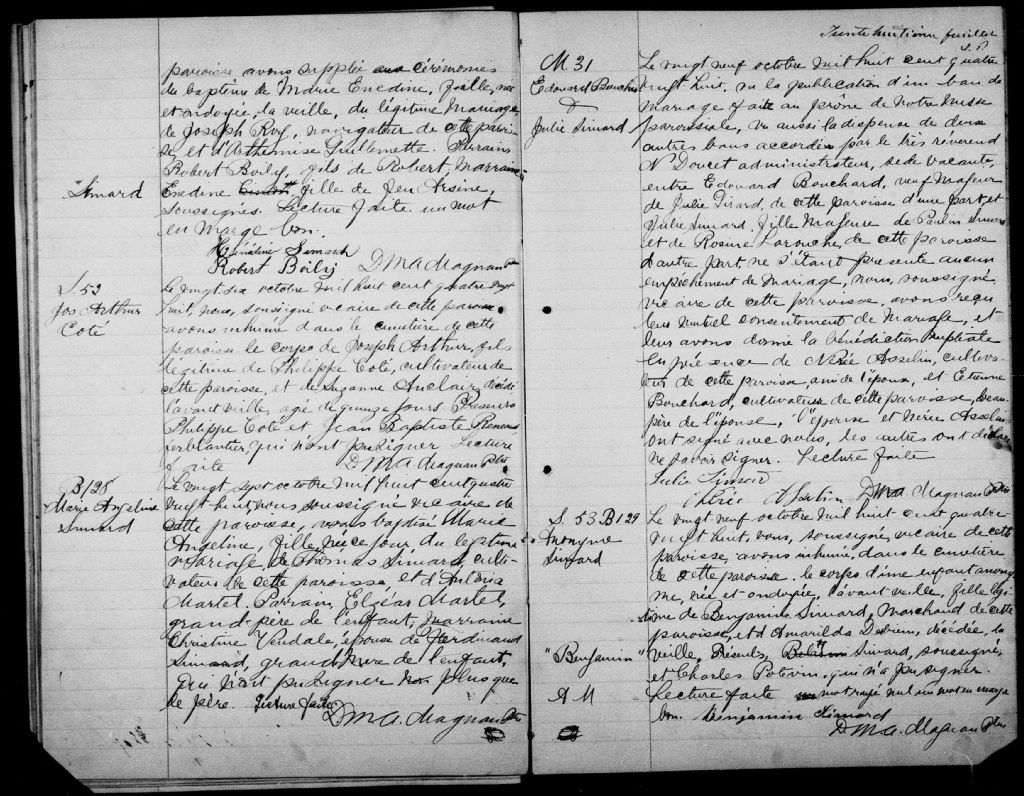 paroisse avons suppléé aux cérémonies
du baptême de Marie Enedine, fille, née
et ondoyée, la veille, du légitime mariage
de Joseph Roy, navigateur de cette parois-
se et d'Arthémise Guillemette. Parrain
Robert Boily, fils de Robert, marraine
"Simard
Enedine fille de feu Arsène,
soussignés. Lecture faite. un mot
en marge bon.
Simard
Robert Boily D M A Magnan Ptre
S. 52
Jos Arthur
Coté
Le vingt six octobre mil huit cent quatre vingt
huit, nous, soussigné vicaire de cette paroisse
avons inhumé dans le cimetière de cette
paroisse le corps de Joseph Arthur, fils
légitime de Philippe Coté, cultivateur de
cette paroisse, et de Suzanne Auclair, décédé
l'avant veille, agé de quinze jours. Présents
Philippe Coté et Jean Baptiste
ferblantier, qui n'ont pu signer. Lecture
faite D M A. Magnan Ptre
B 128
Marie Angeline
Simard
Le vingt sept octobre mil huit cent quatre
vingt huit, nous soussigné vicaire de
cette paroisse, avons baptisé Marie
Angeline, fille, née ce jour du légitime
mariage, de Thomas Simard, culti-
vateur de cette paroisse, et d'
Martel. Parrain, Elgéar Martel,
grand-père de l'enfant, marraine
Christine épouse de Ferdinand
Simard, grand'mère de l'enfant,
qui n'ont pu signer non plus que
le père. Lecture faite
D M A. Magnan Ptre
Trente huitième feuillet
M. 31
Edouard Bouchard
&
Julie Simard
Le vingt neuf octobre mil huit cent quatre
vingt huit, vu la publication d'un ban de
mariage faite au prône de notre messe
paroissiale, vu aussi la dispense de deux
autres bans accordée par le très révérend
N Doucet administrateur, sede vacante,
entre Edouard Bouchard, veuf majeur
de Julie Girard, de cette paroisse d'une part, et
Julie Simard, fille majeure de Paulin Simard
et de Rosine Larouche, de cette paroisse
d'autre part, ne s'étant présenté aucun
empêchement de mariage, nous, soussigné,
vicaire de cette paroisse, avons reçu
leur mutuel consentement de mariage, et
leur avons donné la bénédiction nuptiale
en présence de Nérée Asselin, cultiva-
teur de cette paroisse, ami de l'époux, et Etienne
Bouchard, cultivateur de cette paroisse, beau-
père de l'épouse, l'épouse et Nérée Asselin
ont signé avec nous, les autres ont déclaré
ne savoir signer. Lecture faite
Julie Simard
Nérée Asselin D M A. Magnan Ptre
S. 53 B 129
Anonyme
Simard
Le vingt neuf octobre mil huit cent quatre
vingt huit, nous, soussigné, vicaire de cette
paroisse, avons inhumé, dans le cimetière
de cette paroisse. le corps d'une enfant anony-
me, née et ondoyée, l'avant veille, fille légi-
time de Benjamin Simard, marchand de cette
paroisse, et d'Amarilda Desbiens, décédée, la
"Benjamin"
veille, Présents, Simard, soussigné,
et Charles Potvin, qui n'a pu signer.
A M
Lecture faite mot rayé nul un mot en marge
bon. Benjamin Simard
D M A. Magnan Ptre